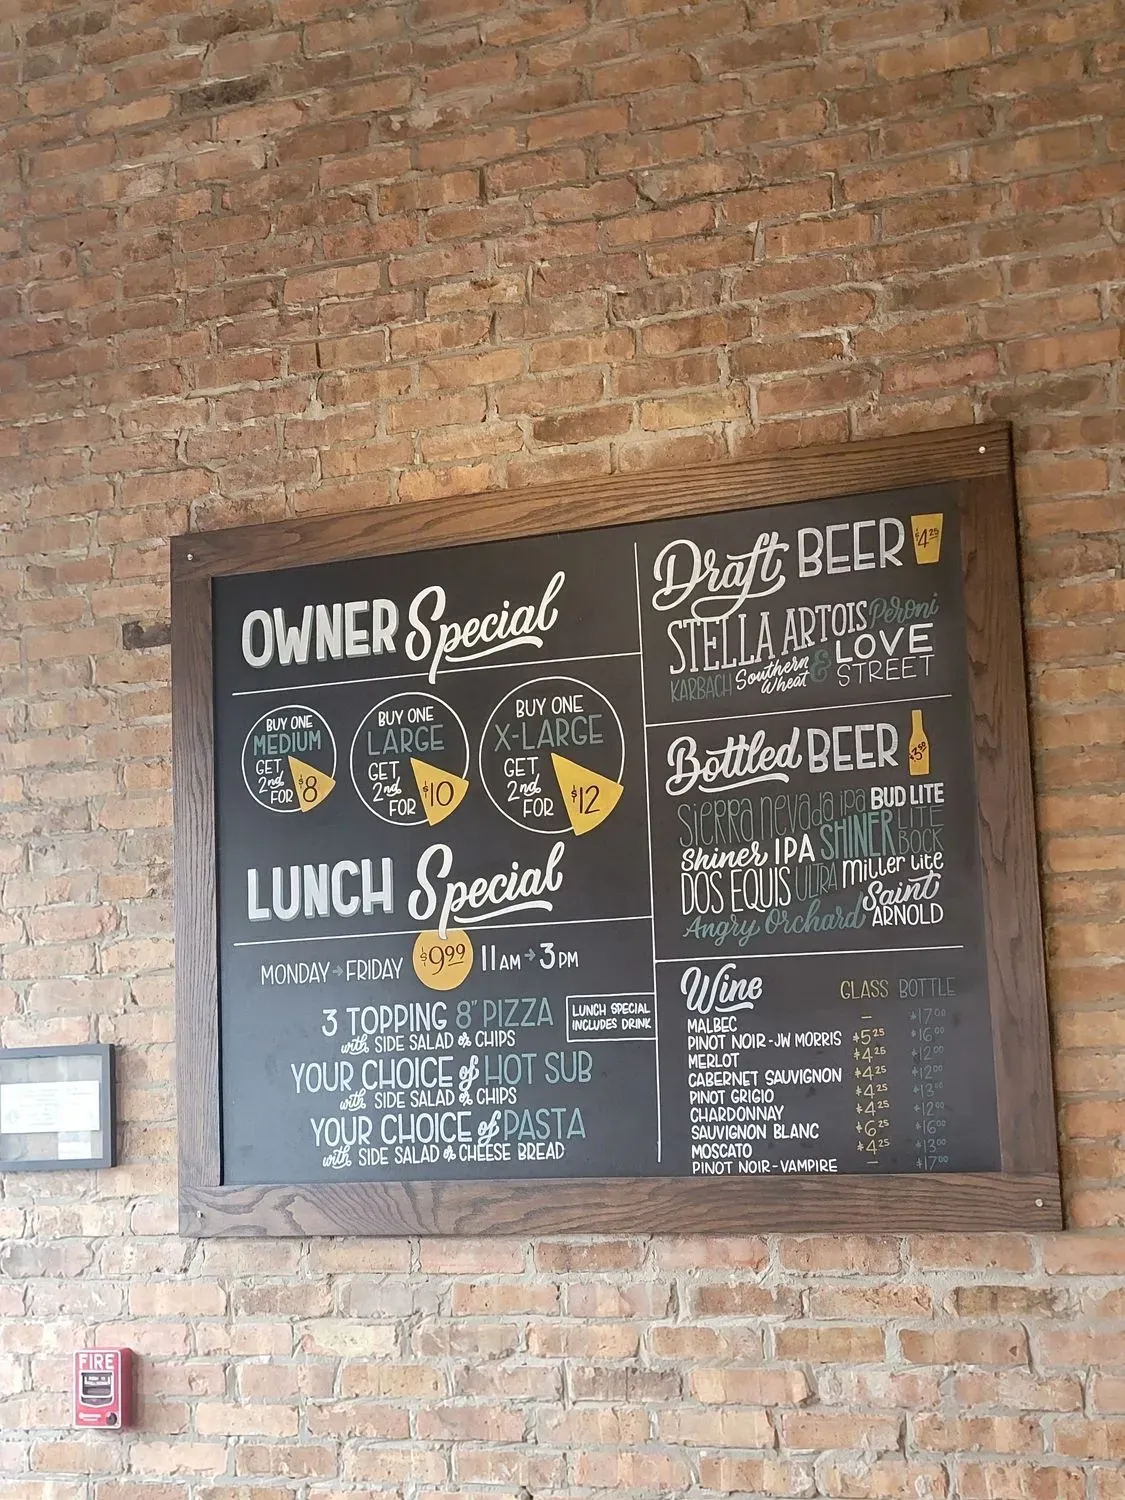 OWNER Special
BUY ONE
MEDIUM
GET
2nd
FOR
$8
BUY ONE
LARGE
GET
2nd
FOR
$10
BUY ONE
X-LARGE
GET
2nd
FOR
$12
LUNCH Special
MONDAY → FRIDAY $9.99 11AM → 3PM
3 TOPPING 8" PIZZA
with SIDE SALAD or CHIPS
LUNCH SPECIAL
INCLUDES DRINK
YOUR CHOICE of HOT SUB
with SIDE SALAD or CHIPS
YOUR CHOICE of PASTA
with SIDE SALAD or CHEESE BREAD
Draft BEER $4.25
STELLA ARTOIS Peroni
KARBACH Southern Wheat & LOVE STREET
Bottled BEER $3.50
Sierra Nevada ipa BUD LITE
Shiner IPA SHINER LITE BOCK
DOS EQUIS ULTRA Miller Lite
Angry Orchard Saint ARNOLD
Wine GLASS BOTTLE
MALBEC – $17.00
PINOT NOIR - JW MORRIS $5.25 $16.00
MERLOT $4.25 $12.00
CABERNET SAUVIGNON $4.25 $12.00
PINOT GRIGIO $4.25 $13.50
CHARDONNAY $4.25 $12.00
SAUVIGNON BLANC $6.25 $16.00
MOSCATO $4.25 $13.00
PINOT NOIR - VAMPIRE – $17.00
FIRE